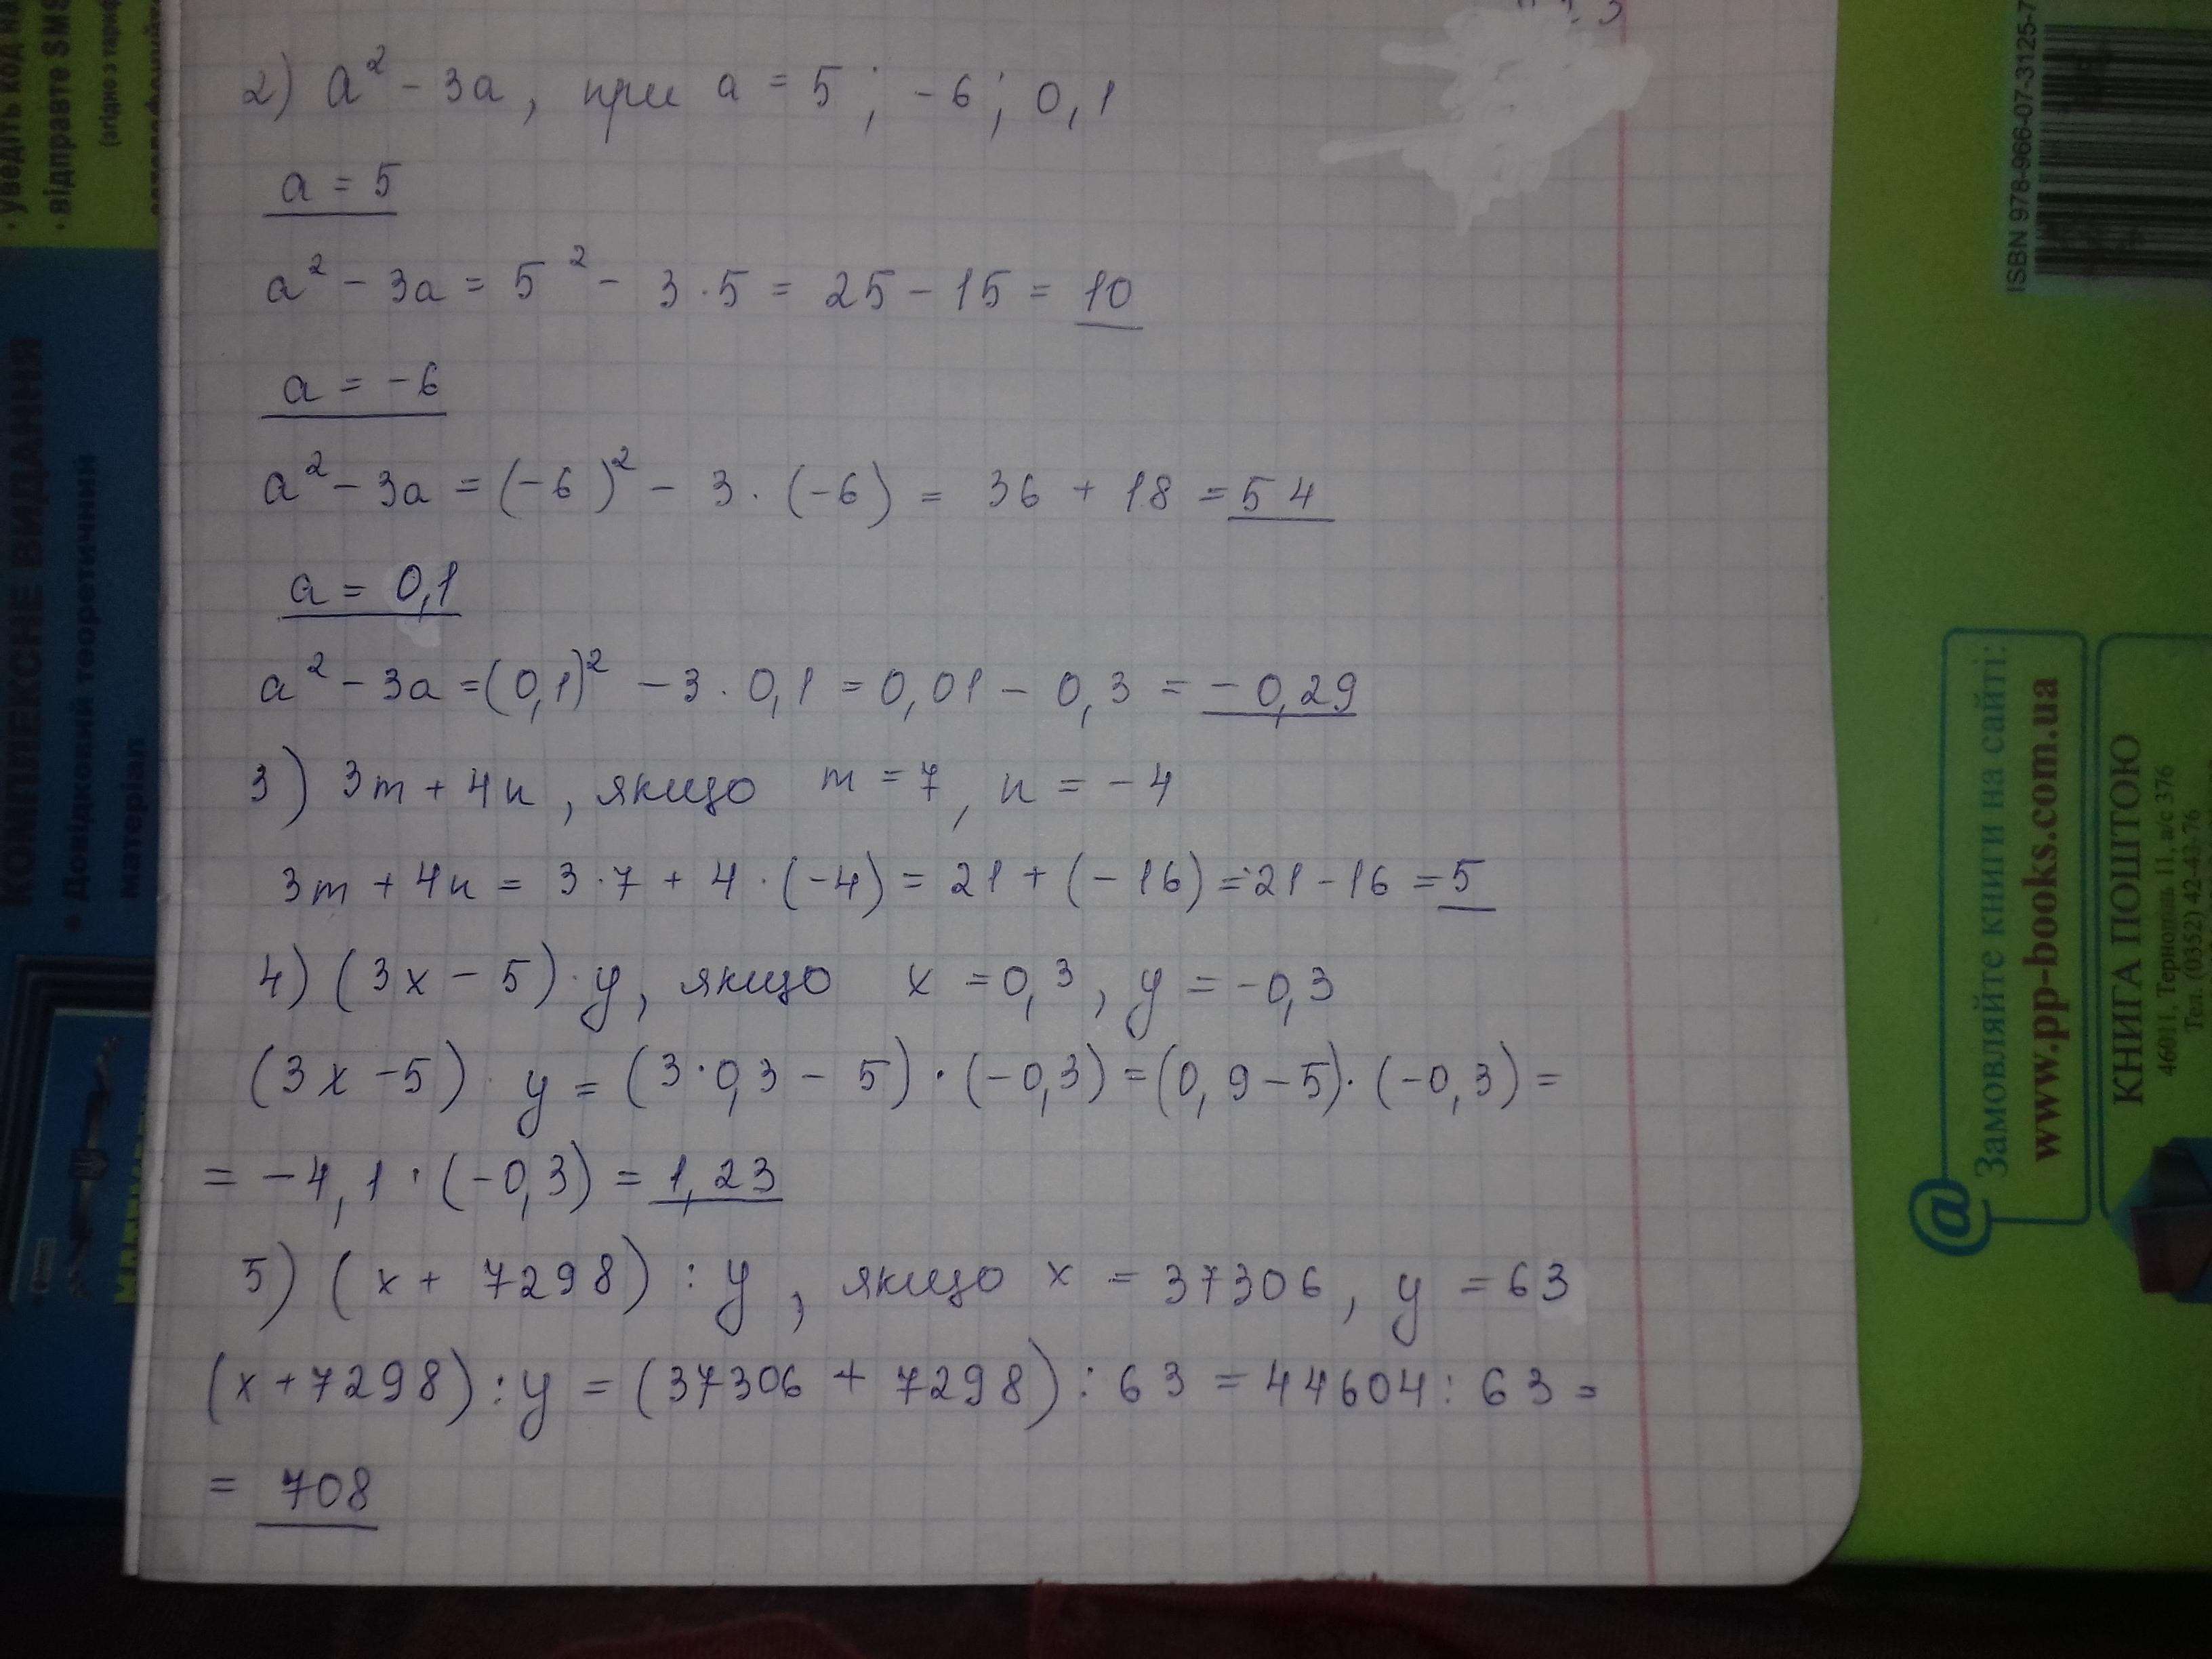 2) a² - 3a, при a = 5; -6; 0,1
a = 5
a² - 3a = 5² - 3·5 = 25 - 15 = 10
a = -6
a² - 3a = (-6)² - 3·(-6) = 36 + 18 = 54
a = 0,1
a² - 3a = (0,1)² - 3·0,1 = 0,01 - 0,3 = -0,29
3) 3m + 4n, якщо m = 7, n = -4
3m + 4n = 3·7 + 4·(-4) = 21 + (-16) = 21 - 16 = 5
4) (3x - 5)·y, якщо x = 0,3, y = -0,3
(3x - 5)·y = (3·0,3 - 5)·(-0,3) = (0,9 - 5)·(-0,3) =
= -4,1·(-0,3) = 1,23
5) (x + 7298) : y, якщо x = 37306, y = 63
(x + 7298) : y = (37306 + 7298) : 63 = 44604 : 63 =
= 708
• уведіть код на
• відправте SMS
(згідно з тариф
КОМПЛЕКСНЕ ВИДАННЯ
• Довідковий теоретичний
матеріал
ISBN 978-966-07-3125-7
@ Замовляйте книги на сайті:
www.pp-books.com.ua
КНИГА ПОШТОЮ
46011, Тернопіль 11, а/с 376
Тел. (0352) 42-43-76